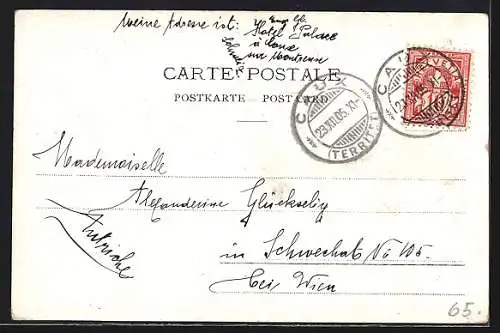 Meine Adresse ist:
Hotel Palace
à Caux
sur Montreux
CARTE POSTALE
POSTKARTE POST CARD
CAUX
23.XII.05.10-
(TERRITET)
HELVETIA
CAUX
23.XII.05.10-
Mademoiselle
Alexanderine Glückselig
in Schwechat No 105.
bei Wien
Autriche
65.